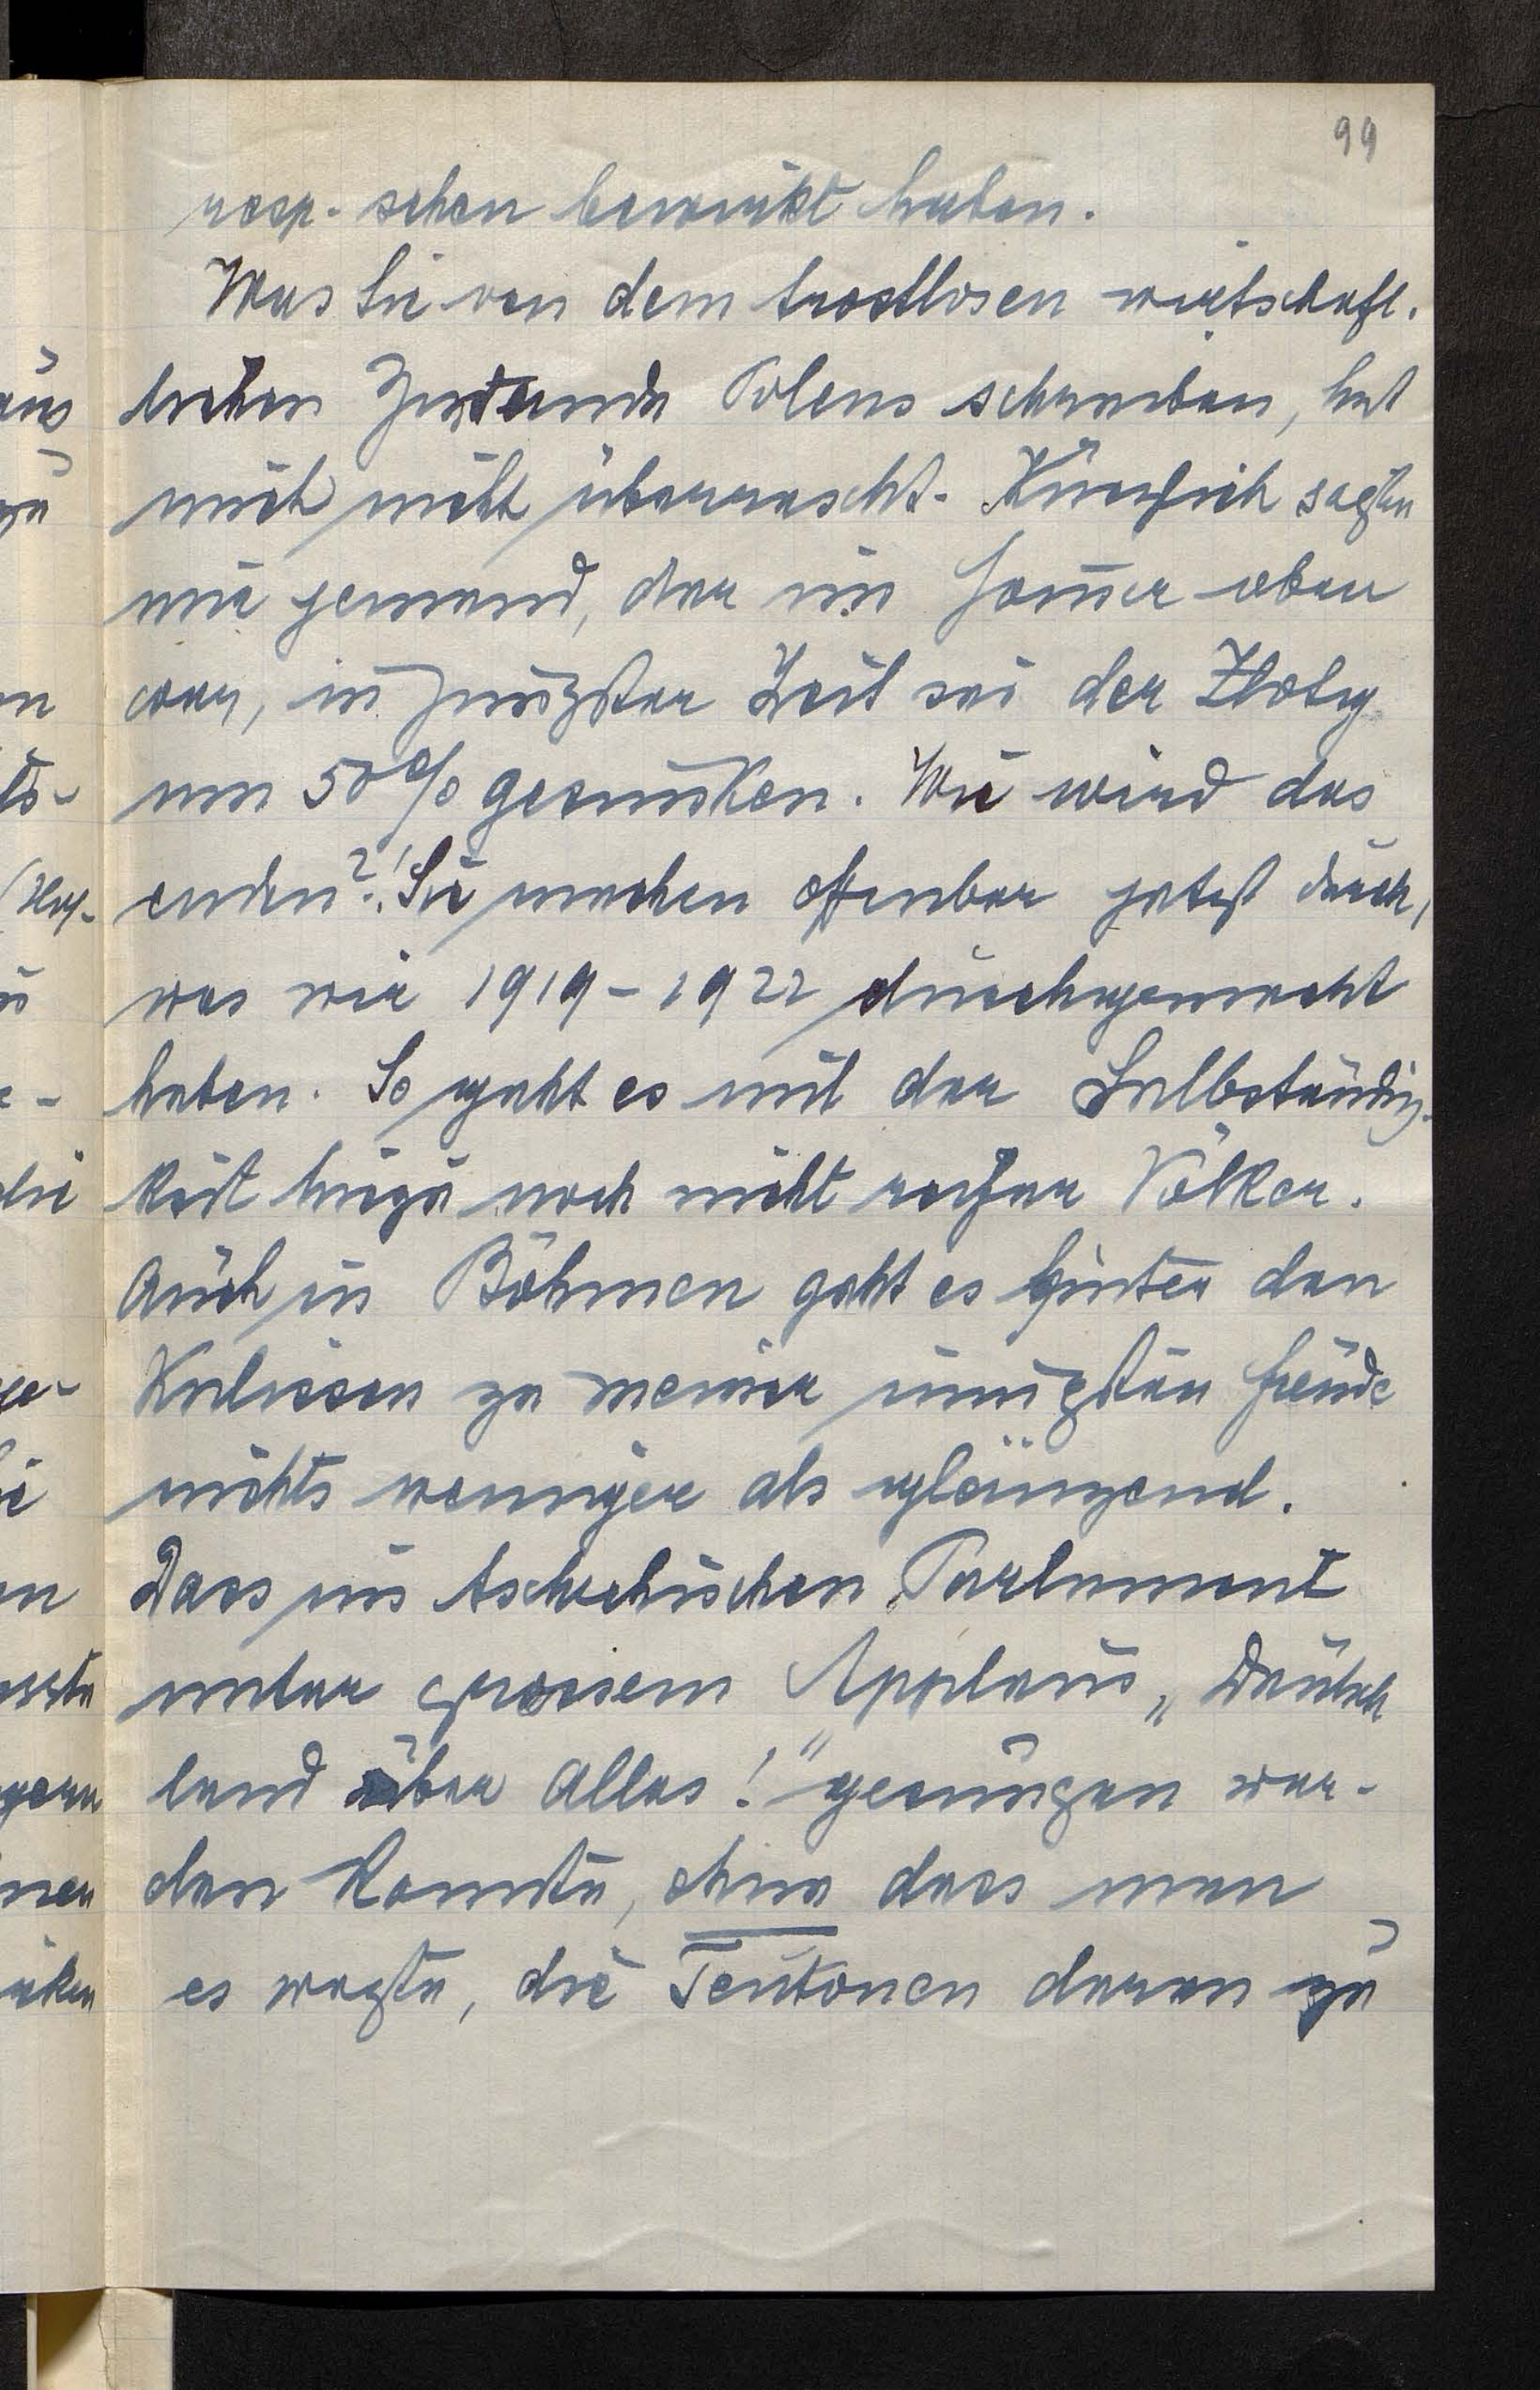 99
resp. schon bewirkt haben.
Was Sie von dem trostlosen wirtschaft-
lichen Zustande Polens schreiben, hat
mich nicht überrascht. Kürzlich sagte
mir jemand, der im Sommer oben
war, in jüngster Zeit sei der Zloty
um 50% gesunken. Wie wird das
enden?! Sie machen offenbar jetzt durch,
was wir 1919-1922 durchgemacht
haben. So geht es mit der Selbständig-
keit hiezu noch nicht reifer Völker.
Auch in Böhmen geht es hinter den
Kulissen zu meiner innigsten Freude
nichts weniger als glänzend.
Dass im tschechischen Parlament
unter grossem Applaus „Deutsch
land über Alles!" gesungen wer-
den konnte, ohne dass man
es wagte, die Teutonen daran zu